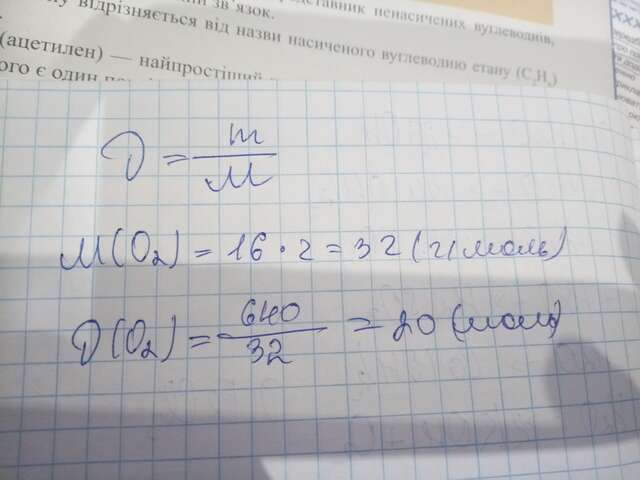 зв'язок.
представник ненасичених вуглеводнів,
відрізняється від назви насиченого вуглеводню етану (C₂H₆)
(ацетилен) — найпростіший
ого є один
ν = m/M
M(O₂) = 16 · 2 = 32 (г/моль)
ν(O₂) = 640/32 = 20 (моль)